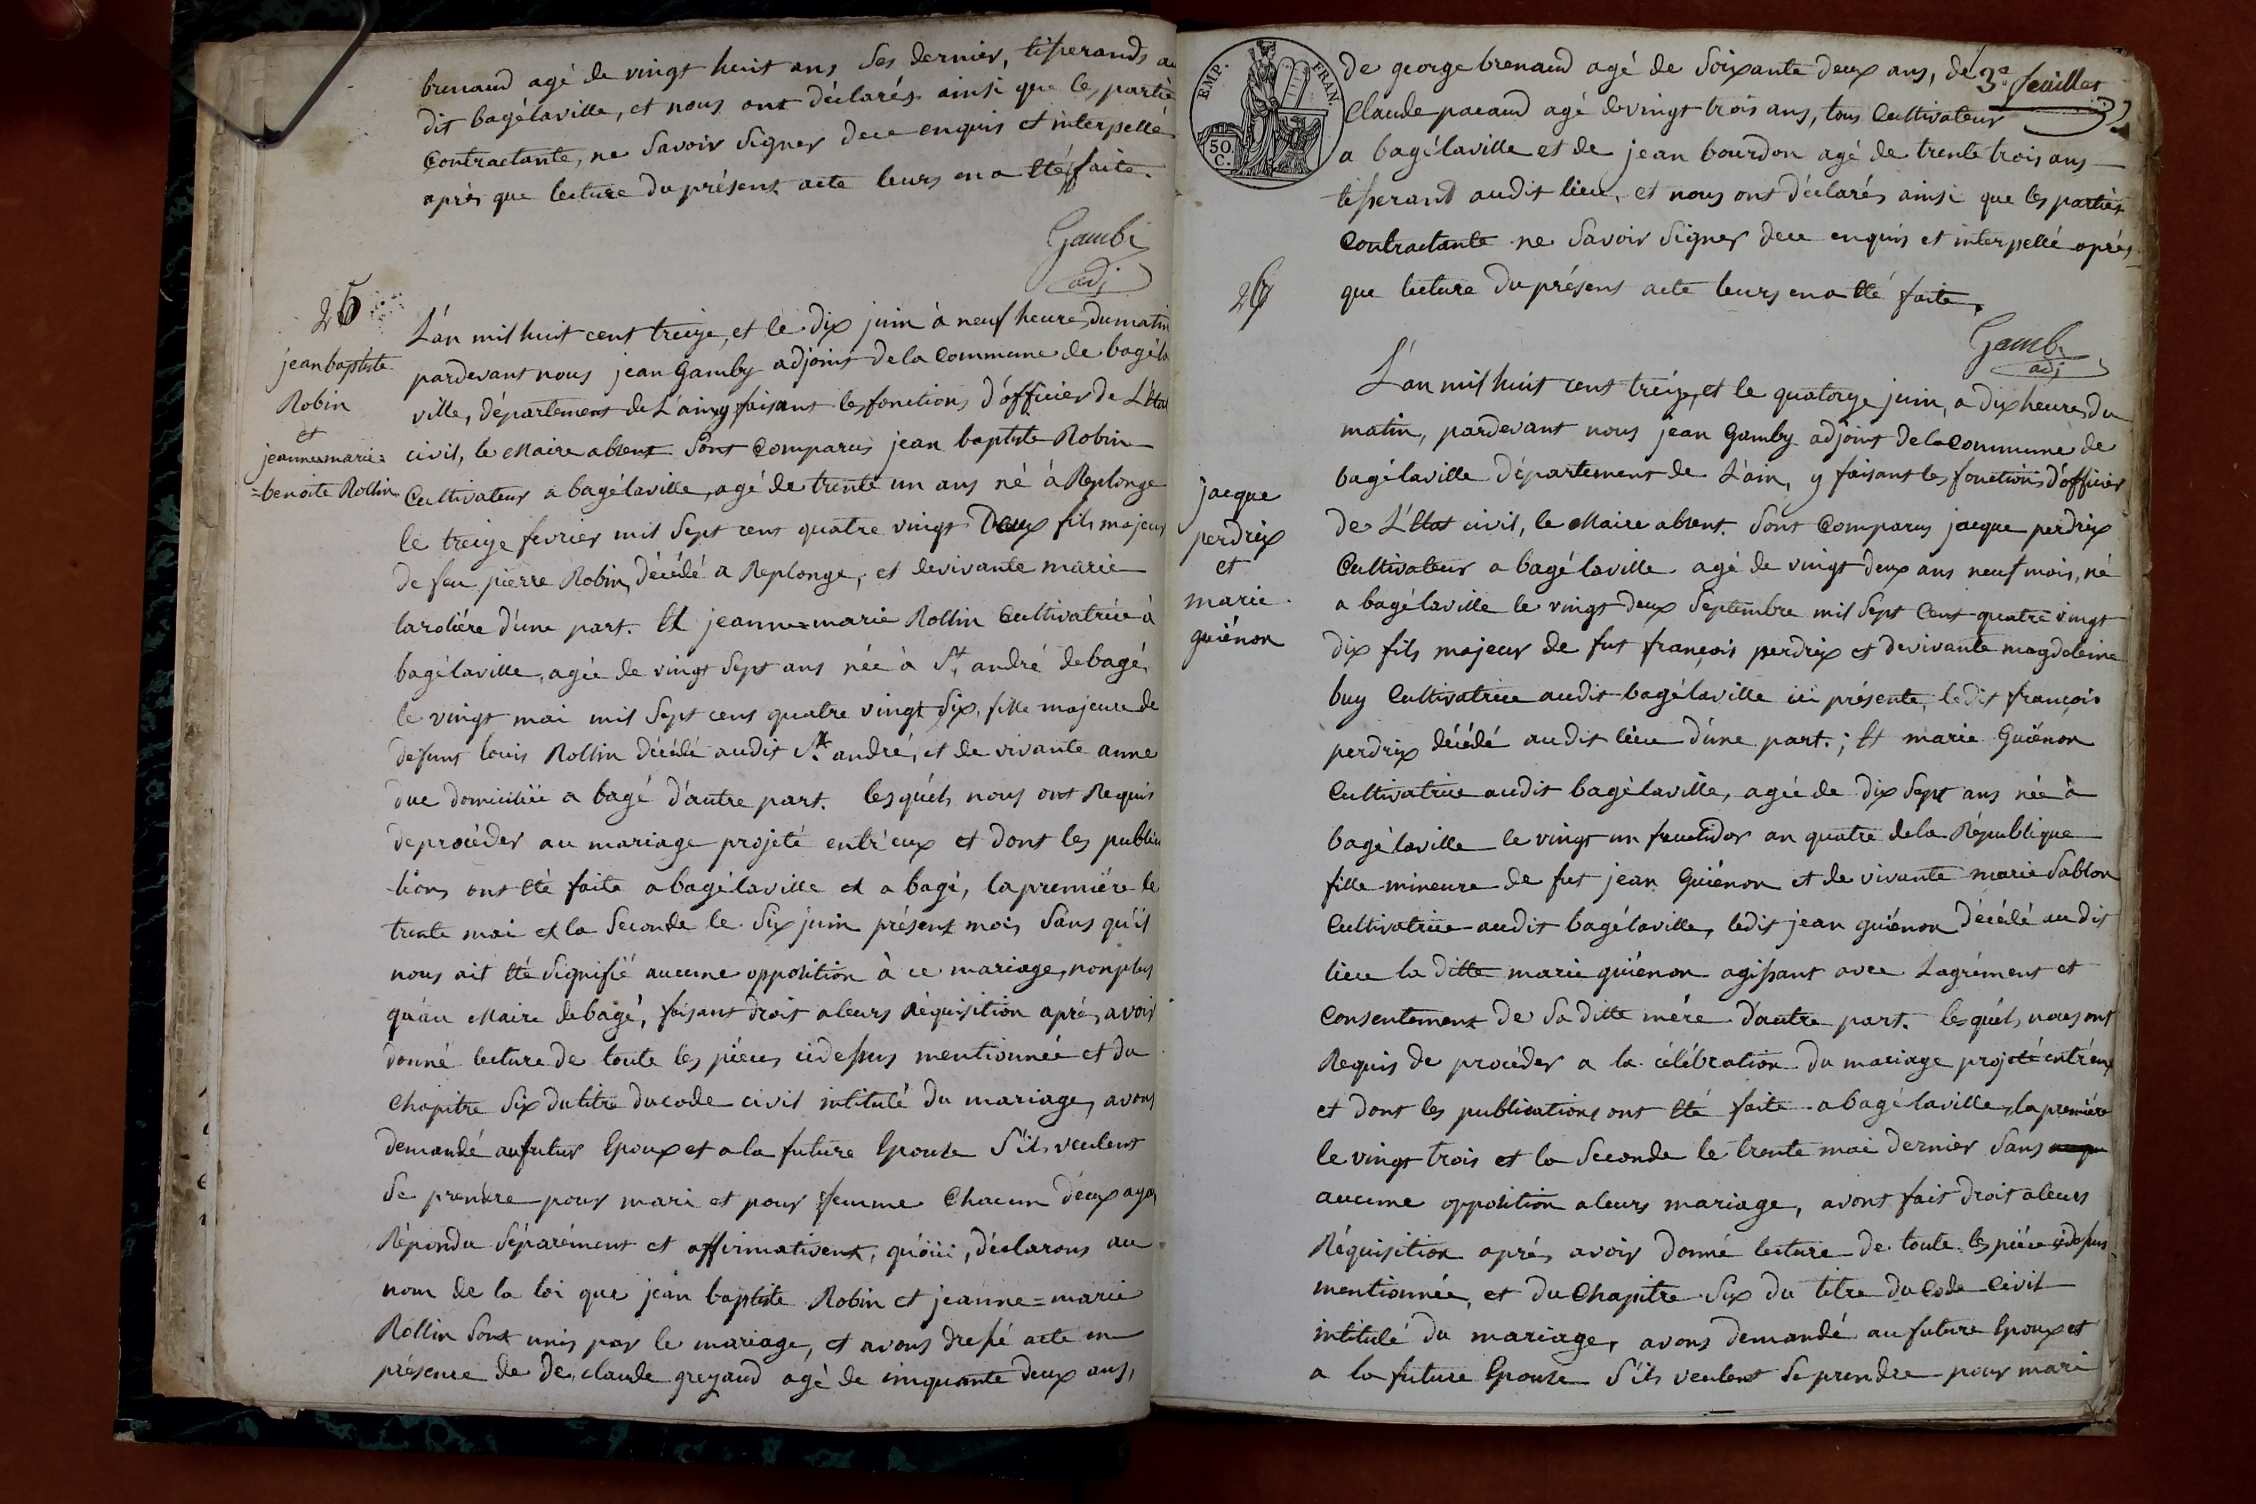 brenaud agé de vingt huit ans ses dernier, tisserands au
dit bagélaville, et nous ont déclarés ainsi que les partie
Contractante, ne savoir signer de ce enquis et interpellé
après que lecture du présent acte leurs en a été faite.
Gambi
adj
26
jean baptiste
Robin
et
jeanne=marie=
=benoite Rollin
L'an mil huit cent treize, et le dix juin à neuf heure du matin
pardevant nous jean Gamby adjoint de la Commune de bagéla
ville, département de L'ain y faisant les fonctions d'officier de L'état
civil, le Maire absent sont Comparus jean baptiste Robin
Cultivateur a bagélaville, agé de trente un ans né à Replonge
le treize fevrier mil sept cent quatre vingt Deux fils majeur
de feu pierre Robin, décédé a Replonge, et de vivante marie
laroliére d'une part. Et jeanne=marie Rollin Cultivatrice à
bagélaville, agée de vingt sept ans née à St. andré de bagé,
le vingt mai mil sept cens quatre vingt six, fille majeure de
defunt louis Rollin décédé audit St. andré, et de vivante anne
due domiciliée a bagé d'autre part. lesquéls nous ont Requis
de procéder au mariage projeté entr'eux et dont les publica
tions ont été faite a bagélaville et a bagé, la premiére le
trente mai et la seconde le six juin présent mois, sans qu'il
nous ait été signifié aucune opposition à ce mariage, non plus
qu'au Maire de bagé, faisant droit a leurs Réquisition aprés avoir
donné lecture de toute les piéces cidessus mentionnée et du
Chapitre six du titre du code civil intitulé du mariage, avons
demandé au futur Epoux et a la future Epouse s'ils veulent
se prendre pour mari et pour femme Chacun d'eux ayan
Répondu séparément et affirmativent, qu'oüi, déclarons au
nom de la loi que jean baptiste Robin et jeanne=marie
Rollin sont unis par le mariage, et avons dressé acte en
présence de de, claude greyaud agé de cinquante deux ans,
EMP. FRAN.
50
C.
3e feuillet
de george brenaud agé de soixante deux ans, de
Claude pacaud agé de vingt trois ans, tous Cultivateur
a bagélaville et de jean bourdon agé de trente trois ans
tisserand audit lieu, et nous ont déclarés ainsi que les parties
Contractante ne savoir signer de ce enquis et interpellé aprés
que lecture du présent acte leurs en a été faite.
Gambi
adj
jacque
perdrix
et
marie
guiénon
L'an mil huit cent treize, et le quatorze juin, a dix heure du
matin, pardevant nous jean Gamby adjoint de la Commune de
bagélaville département de L'ain, y faisant les fonctions d'officier
de L'Etat civil, le Maire absent. sont Comparus jacque perdrix
Cultivateur a bagélaville agé de vingt deux ans neuf mois, né
a bagélaville le vingt deux septembre mil sept Cent quatre vingt
dix fils majeur de fut françois perdrix et de vivante magdeleine
buy Cultivatrice audit bagélaville ici présente, ledit françois
perdrix décédé audit lieu d'une part.; Et marie Guiénon
Cultivatrice audit bagélaville, agée de dix sept ans née à
bagélaville le vingt un fructidor an quatre de la République
fille mineure de fut jean Guiénon et de vivante marie sablon
Cultivatrice audit bagélaville, ledit jean guiénon décédé audit
lieu la ditte marie guiénon agissant avec L'agrément et
Consentement de sa ditte mére d'autre part. lesquéls nous ont
Requis de procéder a la célébration du mariage projeté entr'eux
et dont les publications ont été faite a bagélaville, la premiére
le vingt trois et la seconde le trente mai dernier sans
aucune opposition a leurs mariage, avont fait droit a leurs
Réquisition aprés avoir donné lecture de toute les piéce cidessus
mentionnée, et du Chapitre six du titre du Code Civil
intitulé du mariage, avons demandé au future Epoux et
a la future Epouse s'ils veulent se prendre pour mari